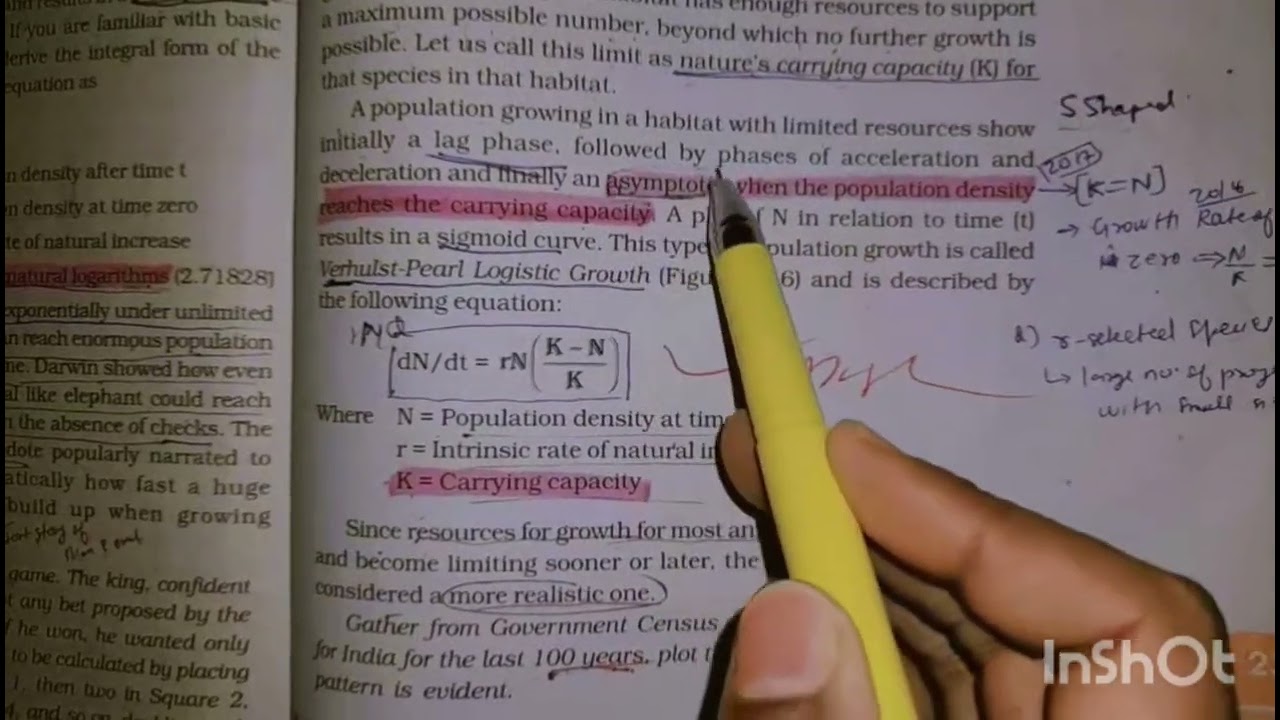 If you are familiar with basic
derive the integral form of the
equation as
n density after time t
n density at time zero
te of natural increase
natural logarithms (2.71828)
exponentially under unlimited
n reach enormous population
ne. Darwin showed how even
al like elephant could reach
n the absence of checks. The
dote popularly narrated to
atically how fast a huge
build up when growing
game. The king, confident
t any bet proposed by the
f he won, he wanted only
to be calculated by placing
1, then two in Square 2,
has enough resources to support
a maximum possible number, beyond which no further growth is
possible. Let us call this limit as nature's carrying capacity (K) for
that species in that habitat.
A population growing in a habitat with limited resources show
initially a lag phase, followed by phases of acceleration and
deceleration and finally an asymptote, when the population density
reaches the carrying capacity. A p f N in relation to time (t)
results in a sigmoid curve. This type pulation growth is called
Verhulst-Pearl Logistic Growth (Figu 6) and is described by
the following equation:
dN/dt = rN(K – N / K)
Where N = Population density at tim
r = Intrinsic rate of natural in
K = Carrying capacity
Since resources for growth for most an
and become limiting sooner or later, the
considered a more realistic one.
Gather from Government Census
for India for the last 100 years, plot t
pattern is evident.
S Shaped
2017
[K=N]
2018
→ Growth Rate of
is zero ⇒ N/K =
2) r-selected species
↳ large no. of prog
with small s
InShOt